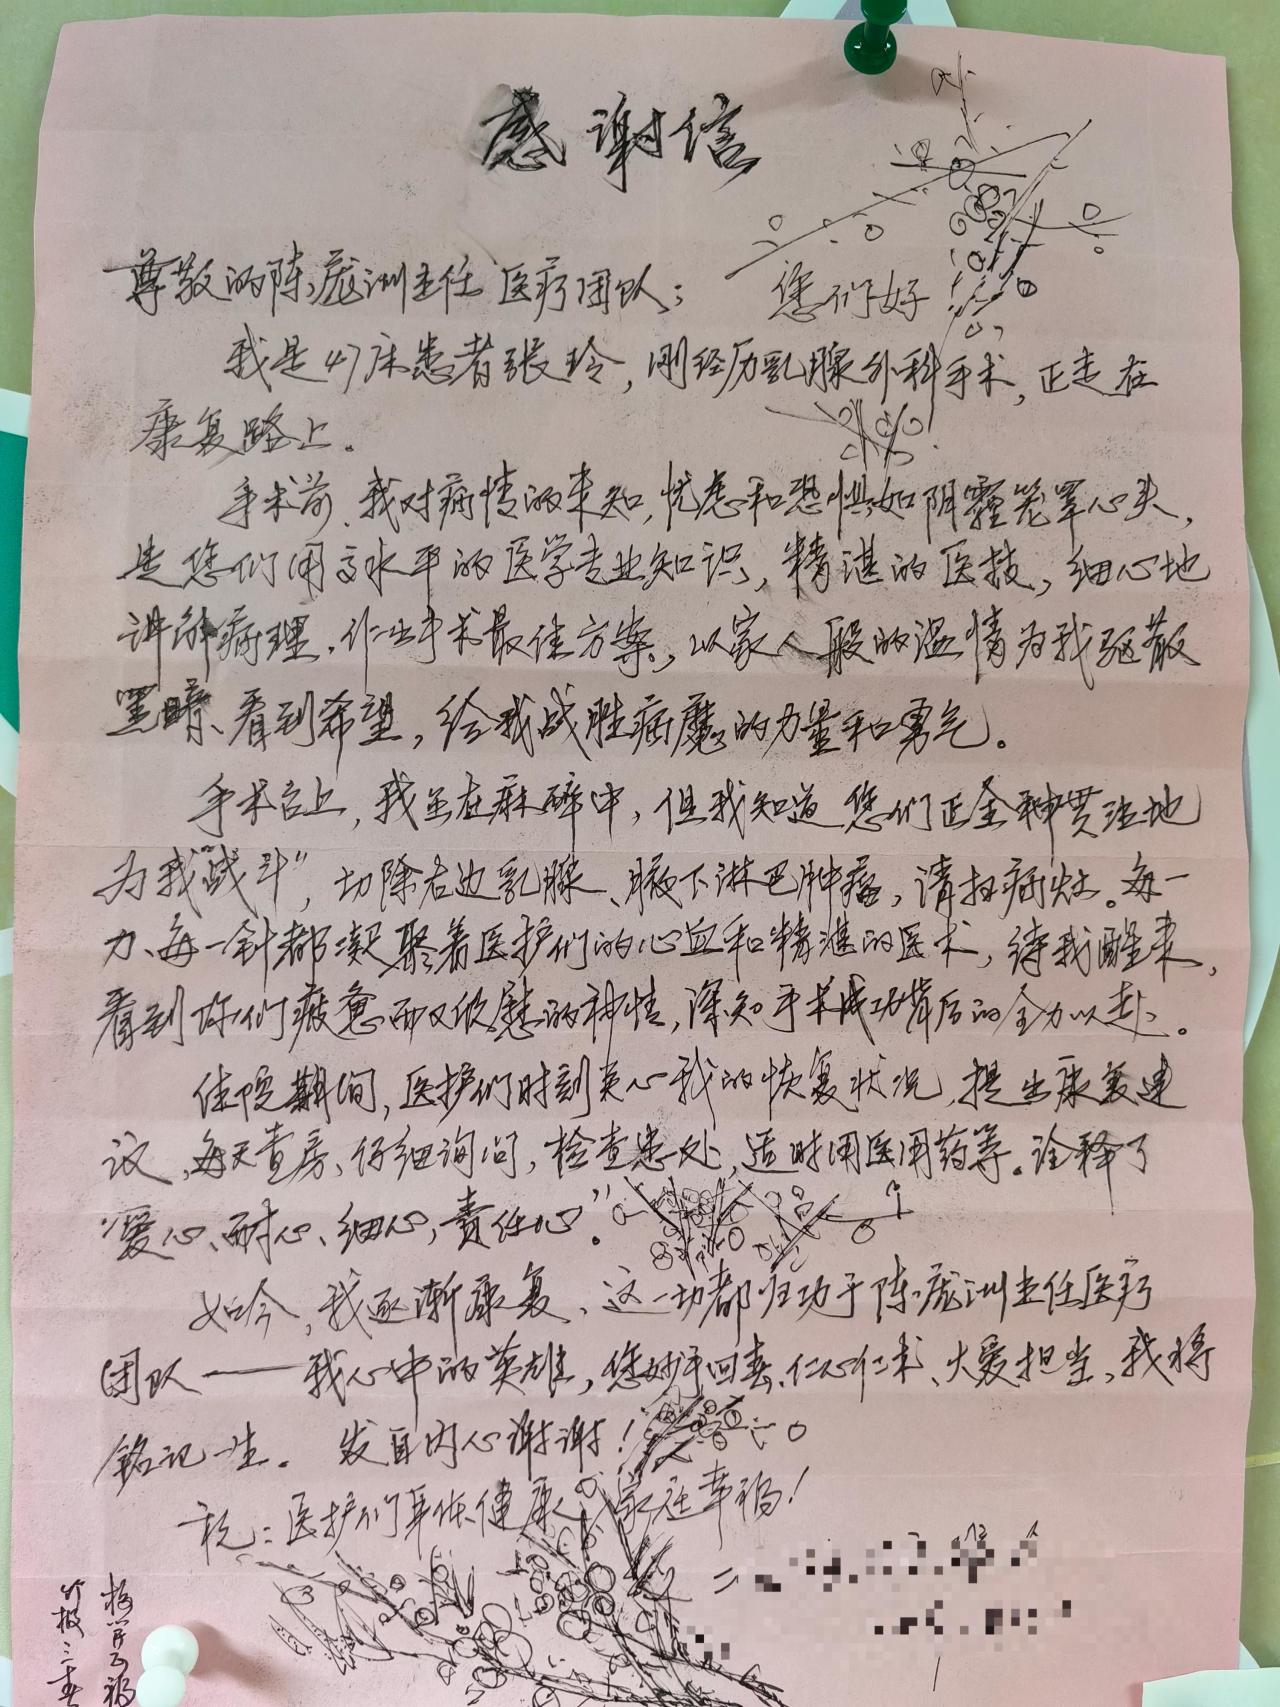 感谢信
尊敬的陈庞洲主任医疗团队: 您们好!
我是47床患者张玲,刚经历乳腺外科手术,正走在
康复路上。
手术前、我对病情的未知,忧虑和恐惧如阴霾笼罩心头,
是您们用高水平的医学专业知识,精湛的医技,细心地
讲解病理、作出手术最佳方案、以家人般的温情为我驱散
黑暗、看到希望,给我战胜病魔的力量和勇气。
手术台上,我虽在麻醉中,但我知道您们正全神贯注地
为我"战斗",切除右边乳腺、腋下淋巴肿瘤,清扫病灶。每一
刀、每一针都凝聚着医护们的心血和精湛的医术,待我醒来,
看到你们疲惫而又欣慰的神情,深知手术成功背后的全力以赴。
住院期间,医护们时刻关心我的恢复状况,提出康复建
议、每天查房、仔细询问,检查患处,适时用医用药等。诠释了
"爱心、耐心、细心,责任心"。
如今,我逐渐康复、这一切都归功于陈庞洲主任医疗
团队——我心中的英雄,您妙手回春、仁心仁术、大爱担当,我将
铭记一生。 发自内心谢谢!
祝:医护们身体健康、家庭幸福!
梅开五福
竹报三春